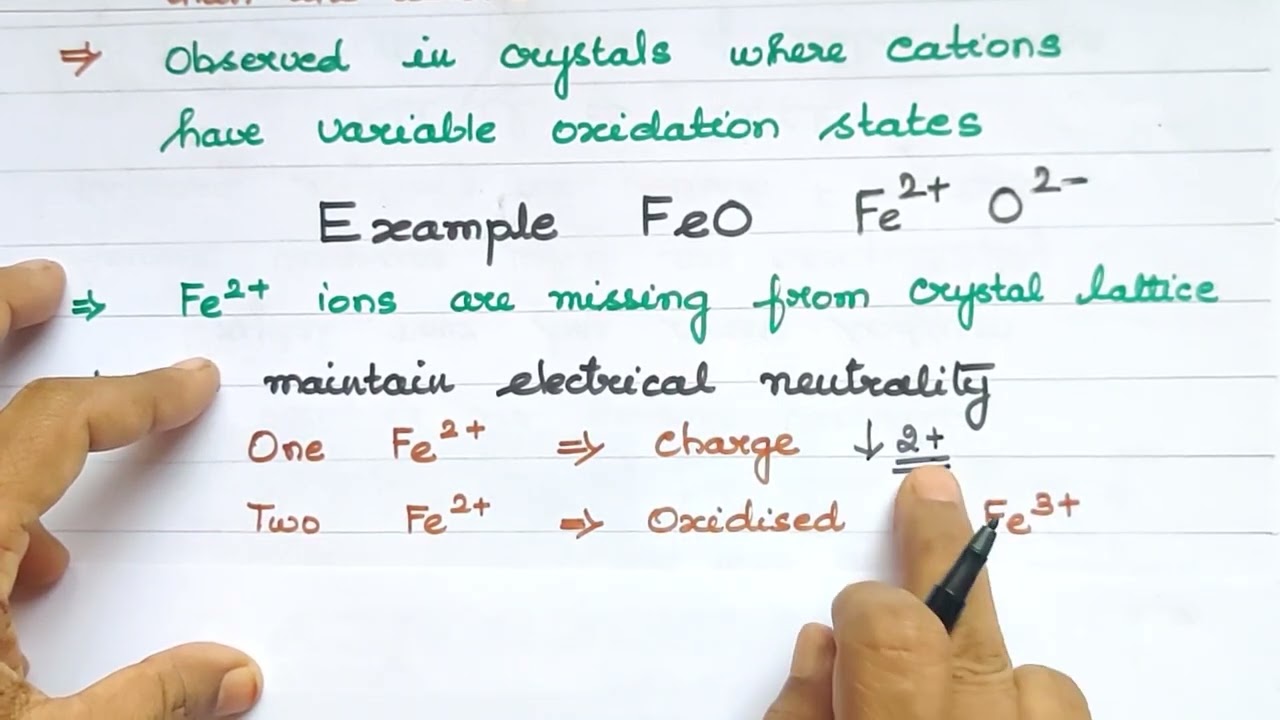 ⇒ Observed in crystals where cations
have variable oxidation states
Example FeO Fe²⁺ O²⁻
⇒ Fe²⁺ ions are missing from crystal lattice
maintain electrical neutrality
One Fe²⁺ ⇒ charge ↓ 2+
Two Fe²⁺ ⇒ Oxidised Fe³⁺